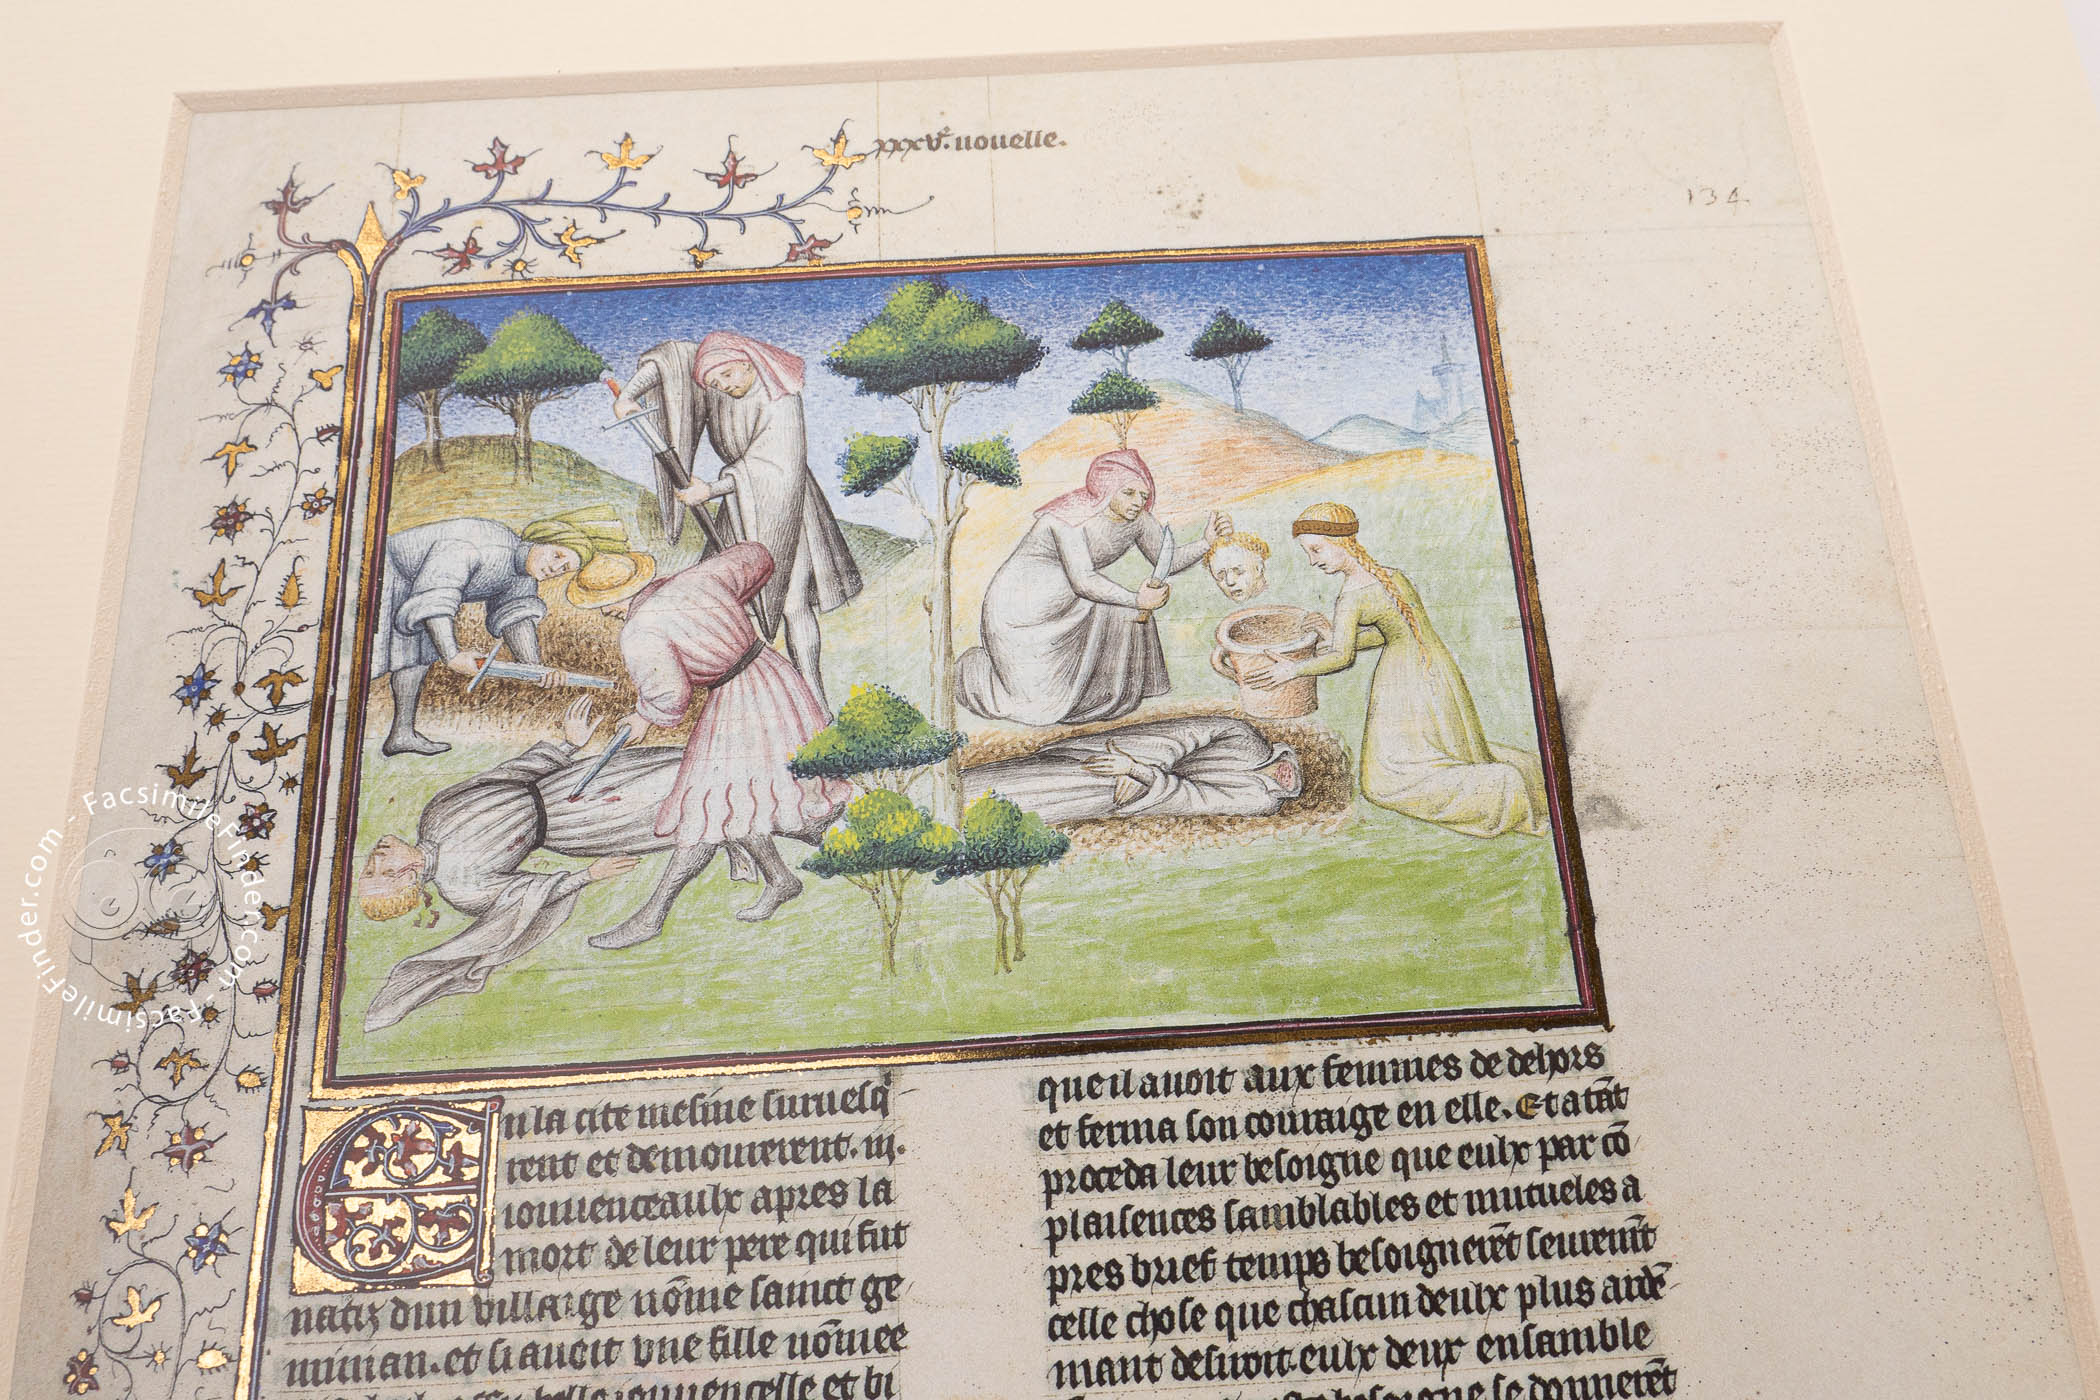 xxxve. nouelle.
134
En la cite mesme suruesq̃
rent et demourerent .iij.
iouuenceaulx apres la
mort de leur pere qui fut
natiz dun villaige nõme sainct ge
minian. et si auoit vne fille nõmee
belle iouuencelle et bi
que il auoit aux femmes de dehors
et ferma son couraige en elle. Et a tãt
proceda leur besoigne que eulx par cõ
plaisences samblables et mutueles a
pres brief temps besoignerẽt seuremẽt
celle chose que chascun deulx plus ardẽ
mant desiroit. eulx deux ensamble
besoigne se donnerẽt
FacsimileFinder.com - FacsimileFinder.com - FacsimileFinder.com